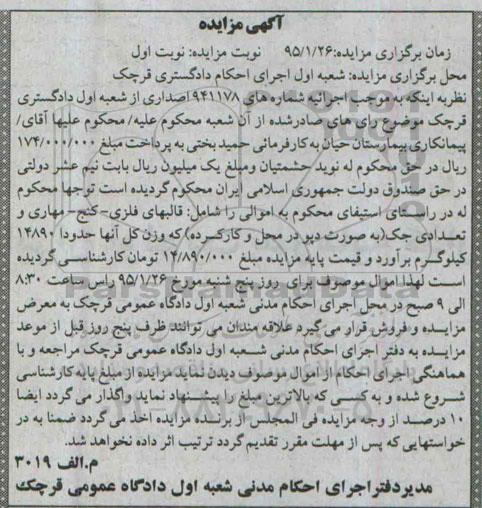 آگهی مزایده
زمان برگزاری مزایده:۹۵/۱/۲۶ نوبت مزایده: نوبت اول
محل برگزاری مزایده: شعبه اول اجرای احکام دادگستری قرچک
نظربه اینکه به موجب اجرائیه شماره های ۹۴۱۱۷۸ اصداری از شعبه اول دادگستری
قرچک موضوع رای های صادرشده از آن شعبه محکوم علیه/ محکوم علیها آقای/
پیمانکاری بیمارستان حیان به کارفرمائی حمید بختی به پرداخت مبلغ ۱۷۴/۰۰۰/۰۰۰
ریال در حق محکوم له نوید حشمتیان ومبلغ یک میلیون ریال بابت نیم عشر دولتی
در حق صندوق دولت جمهوری اسلامی ایران محکوم گردیده است توجها محکوم
له در راستای استیفای محکوم به اموالی را شامل: قالبهای فلزی-کنج- مهاری و
تعدادی جک(به صورت دپو در محل و کارکرده) که وزن کل آنها حدودا ۱۴۸۹۰
کیلوگرم برآورد و قیمت پایه مزایده مبلغ ۱۴/۸۹۰/۰۰۰ تومان کارشناسی گردیده
است لهذا اموال موصوف برای روز پنج شنبه مورخ ۹۵/۱/۲۶ راس ساعت ۸:۳۰
الی ۹ صبح در محل اجرای احکام مدنی شعبه اول دادگاه عمومی قرچک به معرض
مزایده و فروش قرار می گیرد علاقه مندان می توانند ظرف پنج روز قبل از موعد
مزایده به دفتر اجرای احکام مدنی شعبه اول دادگاه عمومی قرچک مراجعه و با
هماهنگی اجرای احکام از اموال موصوف دیدن نماید مزایده از مبلغ پایه کارشناسی
شروع شده و به کسی که بالاترین مبلغ را پیشنهاد نماید واگذار می گردد ایضا
۱۰ درصد از وجه مزایده فی المجلس از برنده مزایده اخذ می گردد ضمنا به در
خواستهایی که پس از مهلت مقرر تقدیم گردد ترتیب اثر داده نخواهد شد.
م.الف ۳۰۱۹
مدیردفتراجرای احکام مدنی شعبه اول دادگاه عمومی قرچک
ParsNamadData
۰۲۱-۸۸۳۴۹۶۷۰-۵